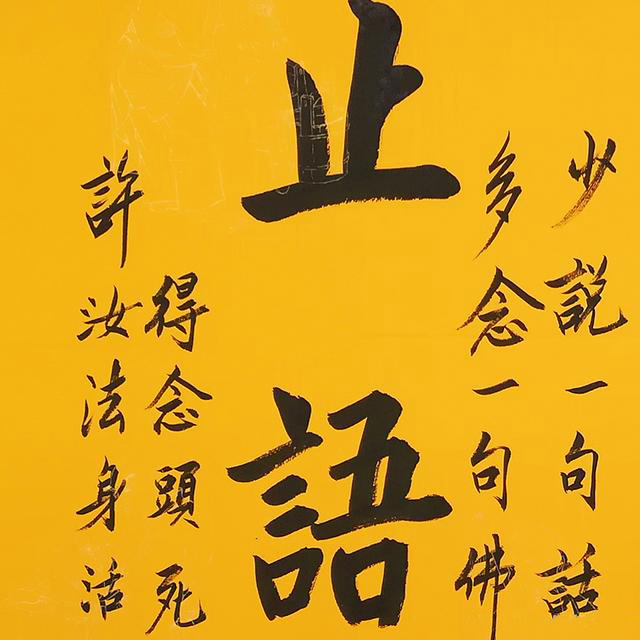 少説一句話
多念一句佛
止語
得念頭死
許汝法身活